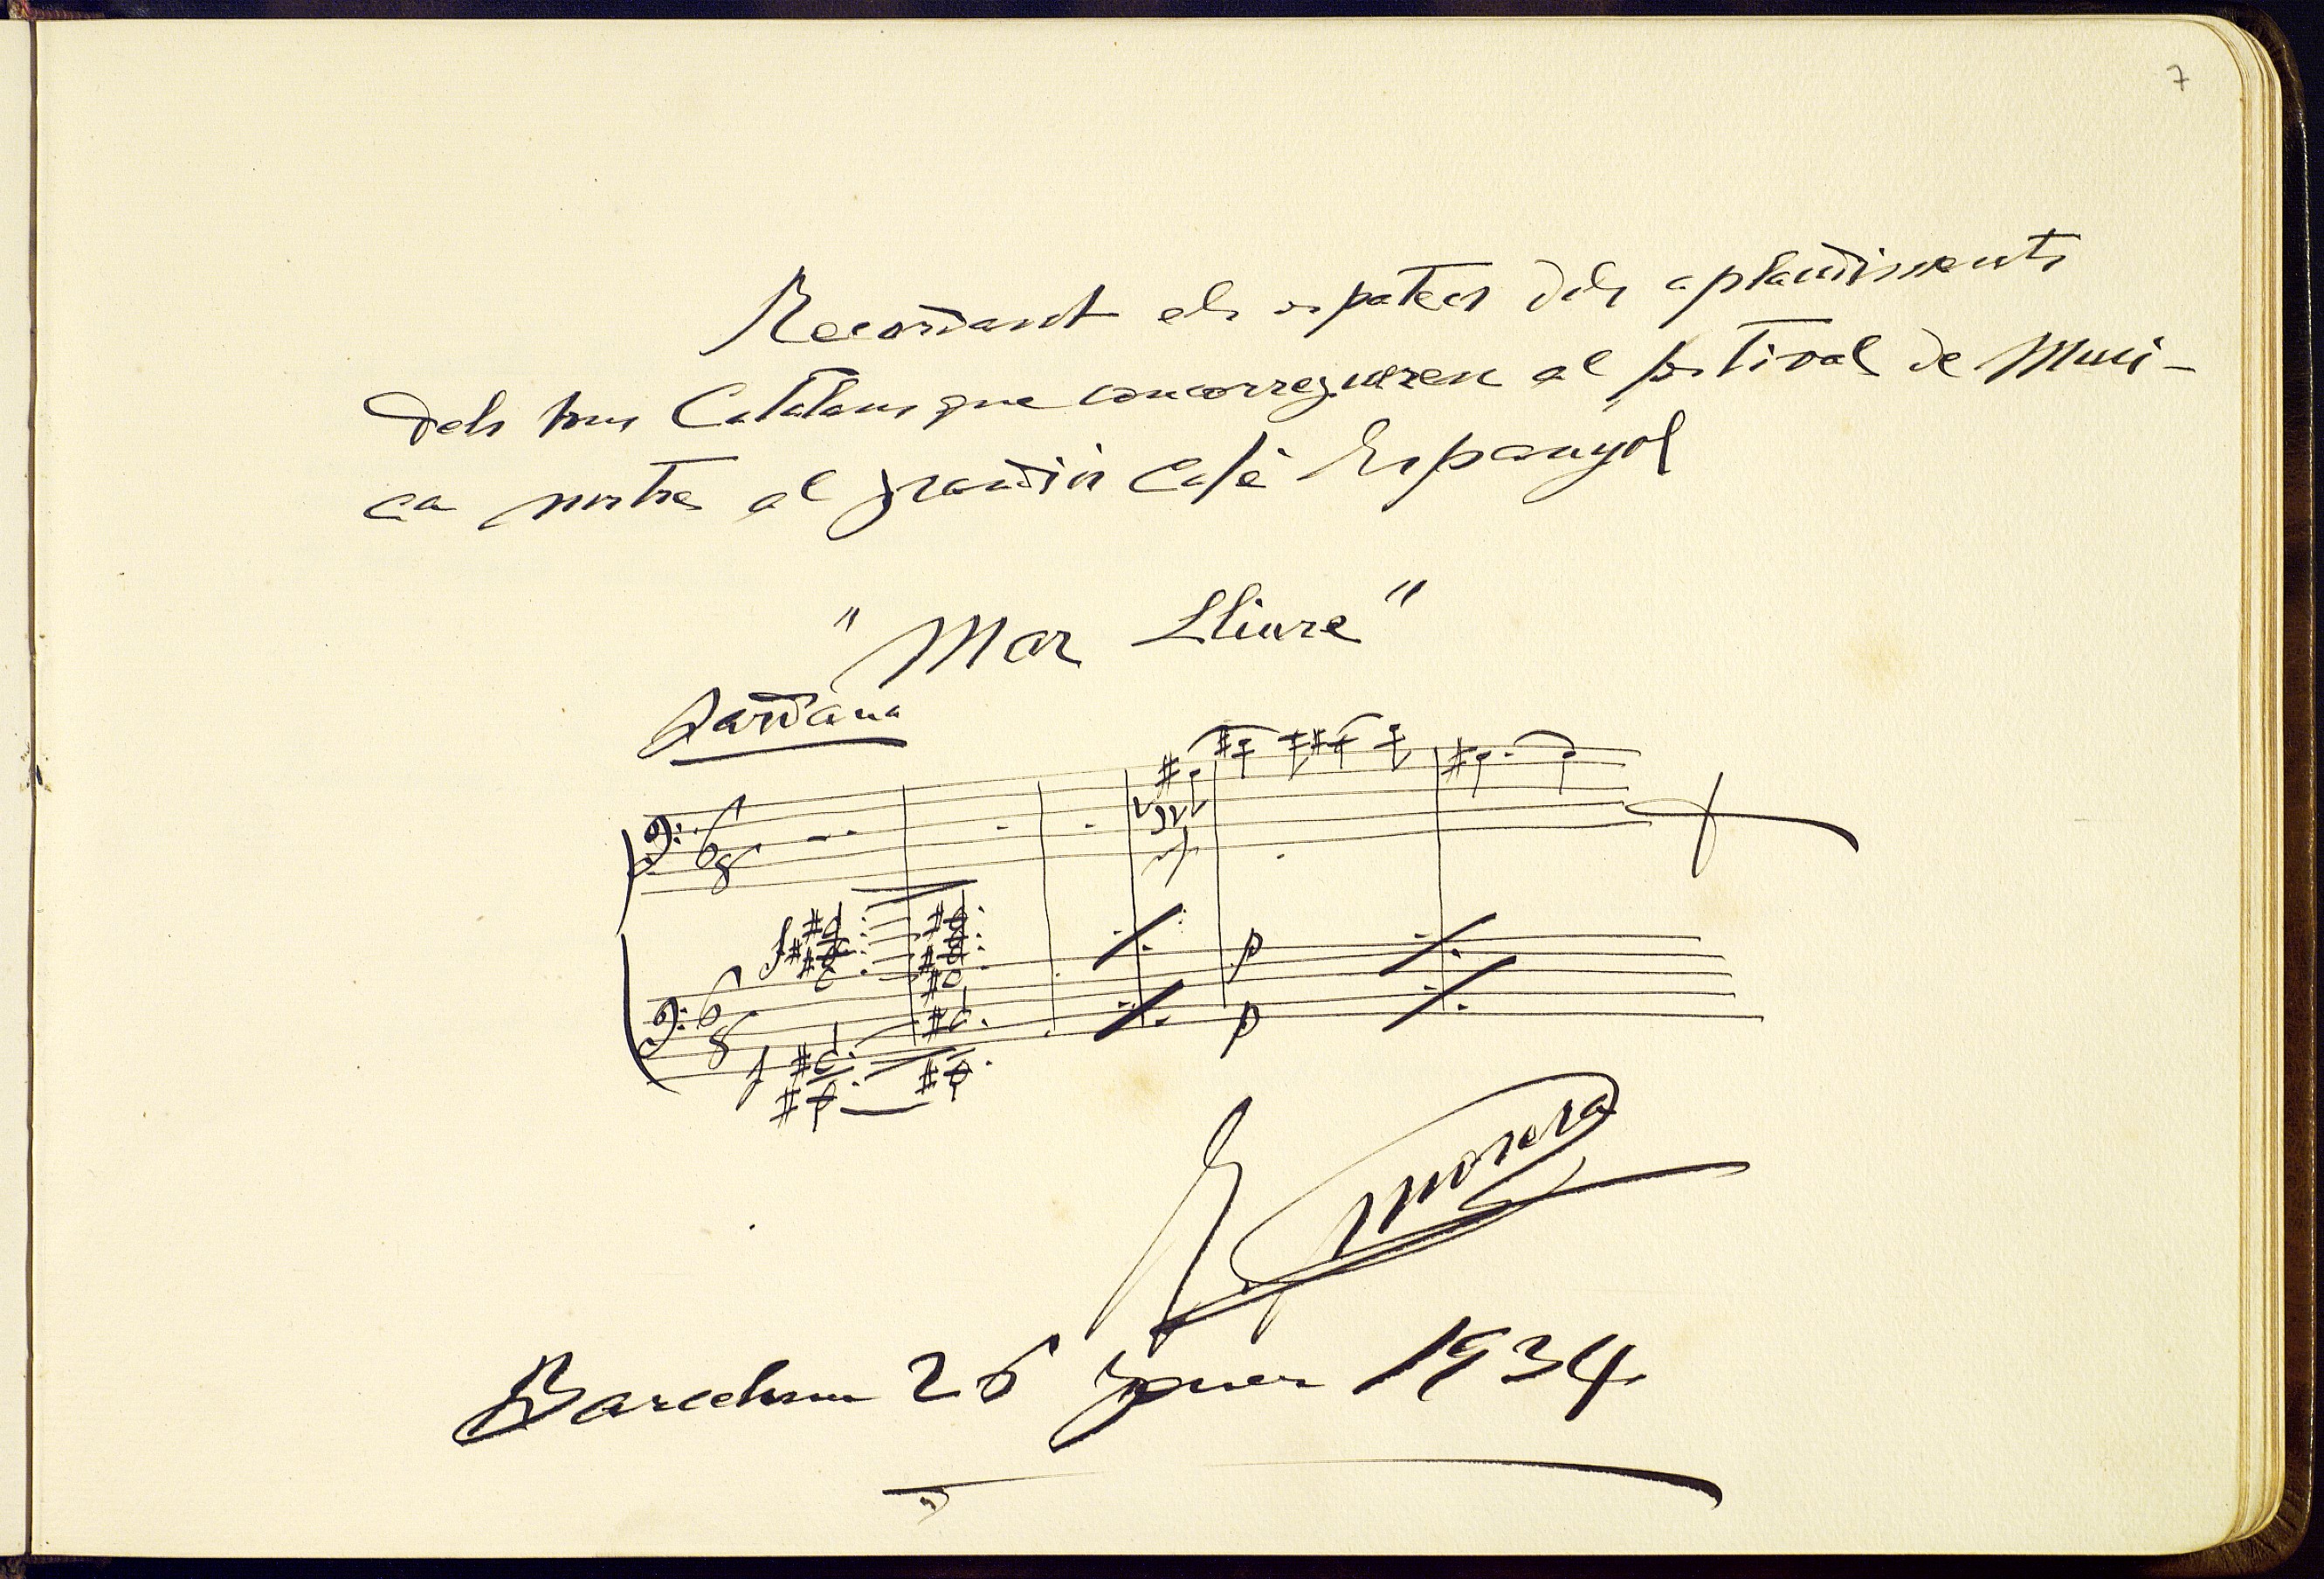 7
Recordant els espetecs dels aplaudiments
dels bons Catalans que concorregueren al festival de Musi-
ca nostra al grandiós Cafè Espanyol
"Mar Lliure"
Sardana
6 8
f
6 8
f
p
p
E Morera
Barcelona 26 Gener 1934